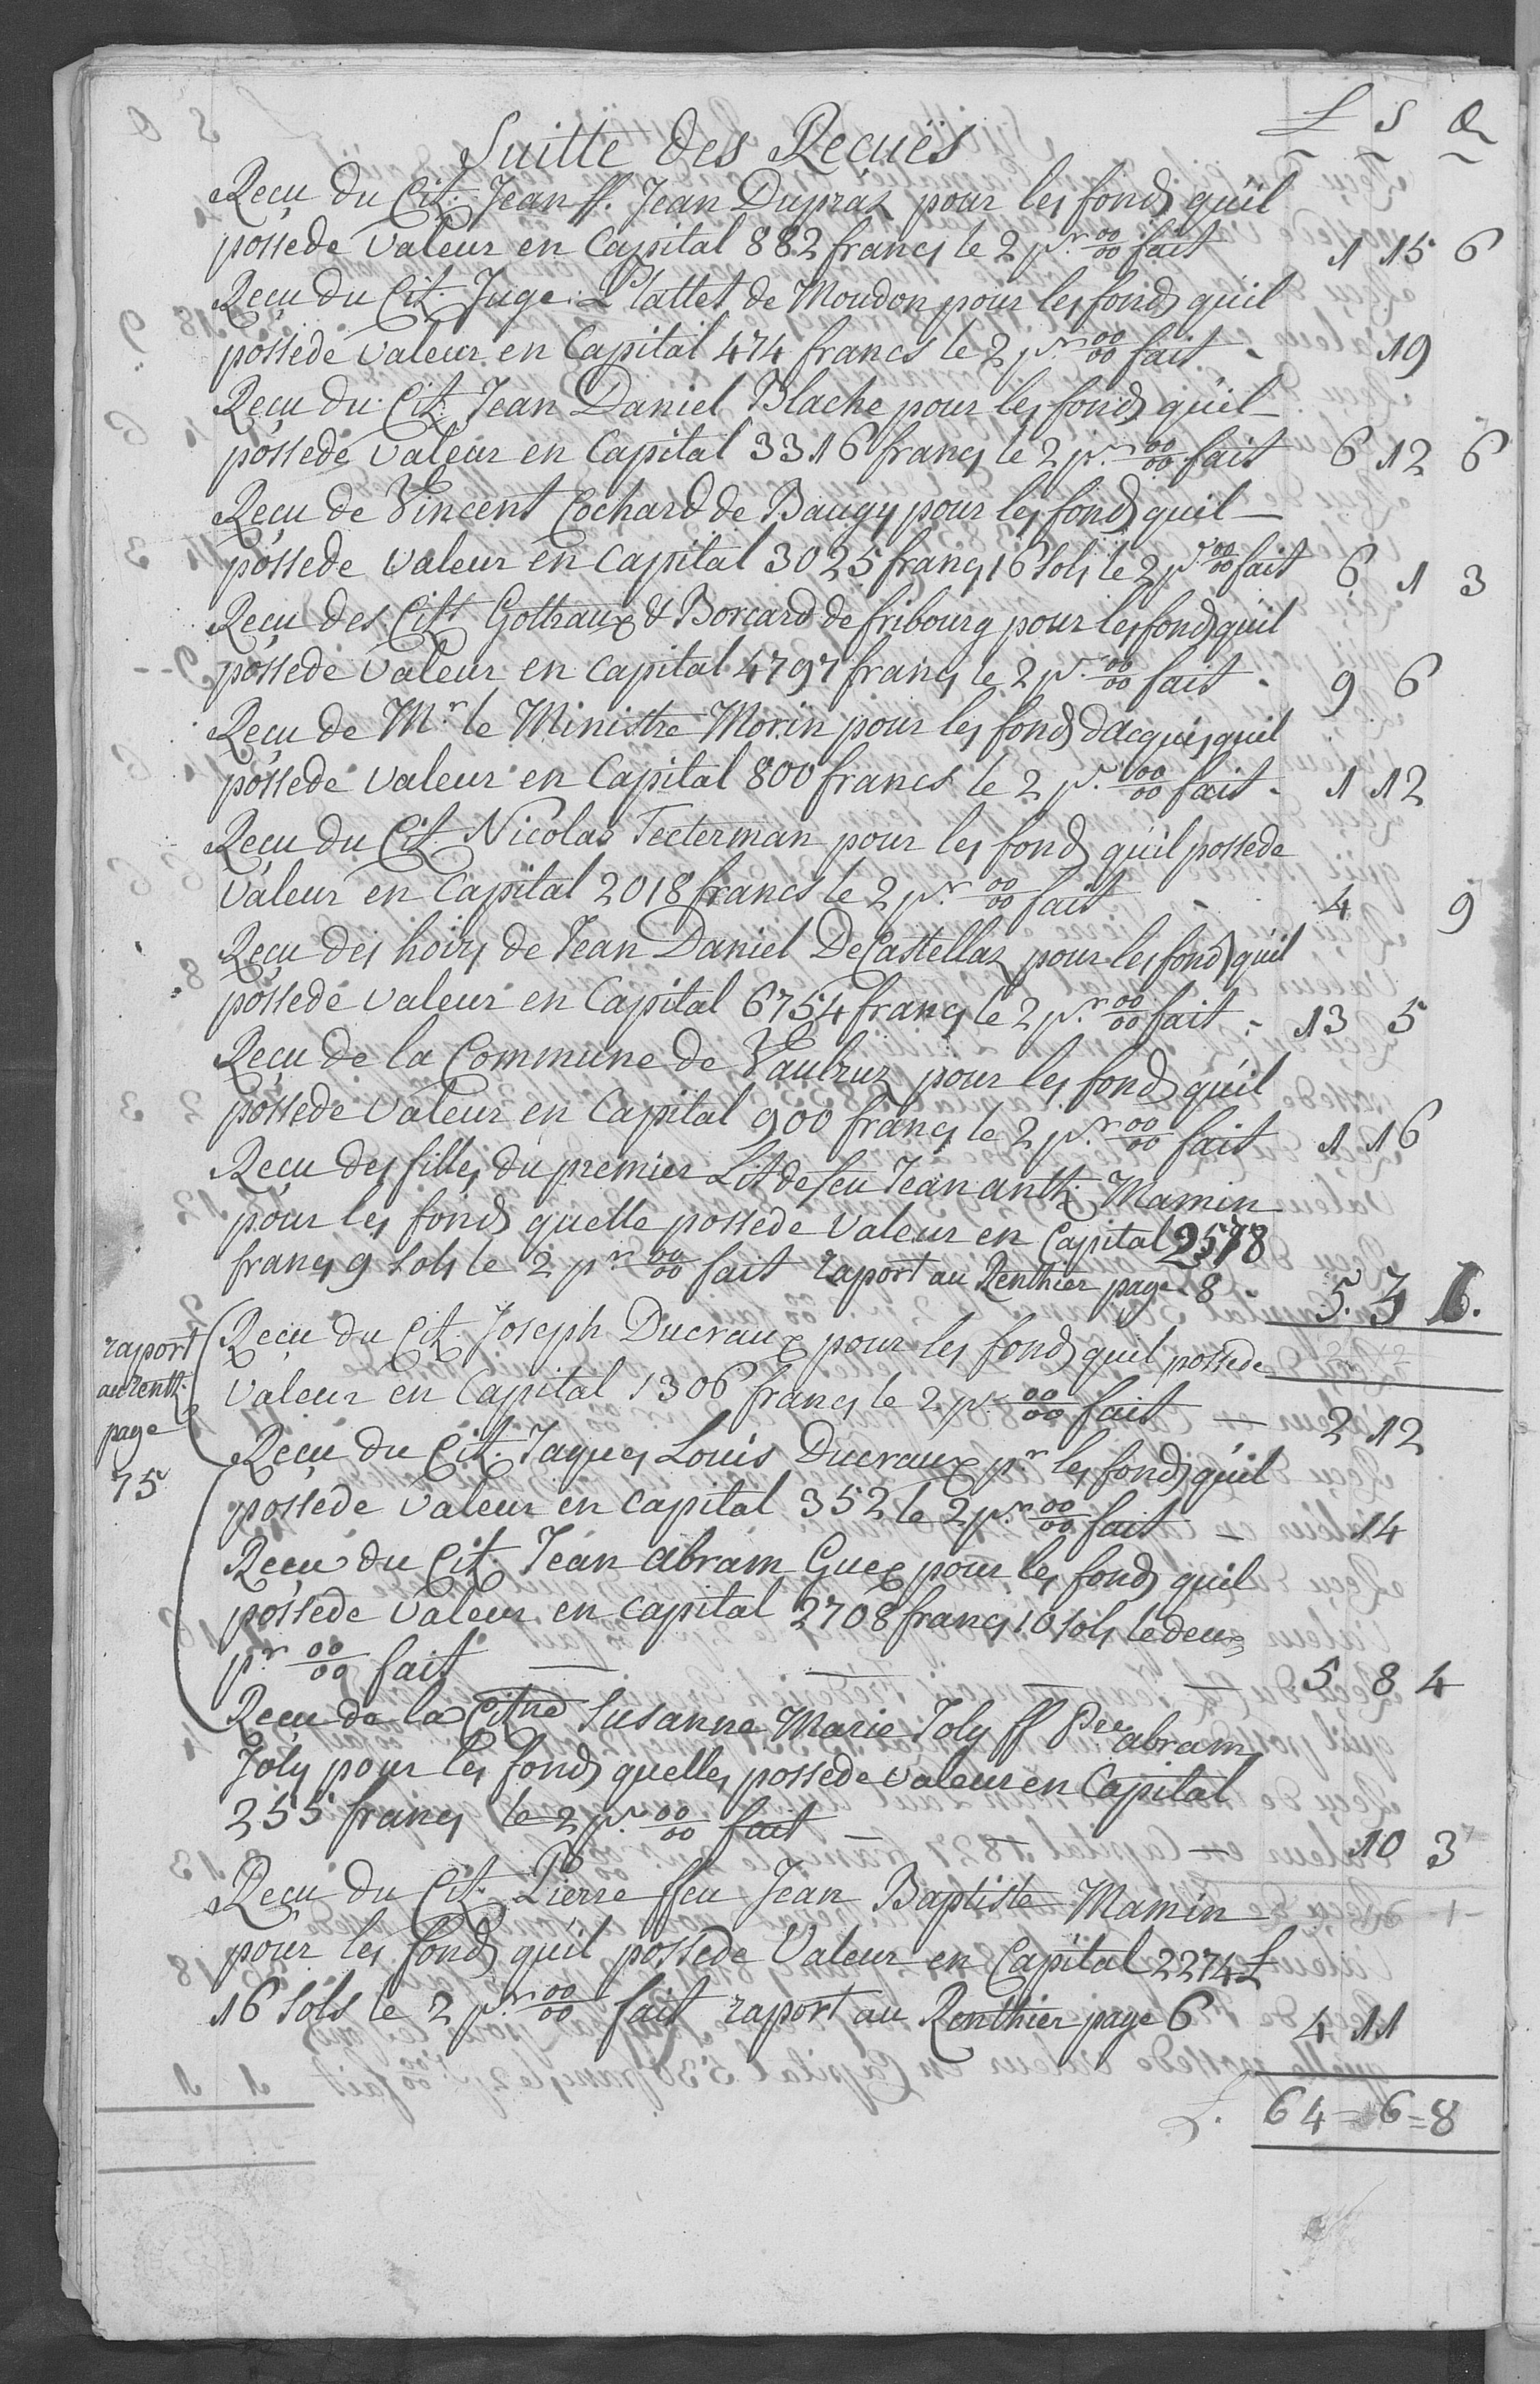 L S D
Suitte des Recuës
Reçu du Cit. Jean ff. Jean Dupraz pour les fonds qu'il
possede valeur en Capital 882 francs le 2 pr. 00/00 fait 1 15 6
Reçu du Cit. Juge Plattet de Moudon pour les fonds qu'il
possede valeur en Capital 474 francs le 2 pr. 00/00 fait - 19
Reçu du Cit. Jean Daniel Blache pour les fonds qu'il
possede valeur en Capital 3316 francs le 2 pr. 00/00 fait 6 12 6
Reçu de Vincent Cochard de Baugy pour les fonds quil
possede valeur en Capital 3025 francs 16 sols le 2 pr 00/00 fait 6 1 3
Reçu des Cits Gottraux & Borcard de fribourg pour les fonds qu'il
possede valeur en capital 4797 francs le 2 pr. 00/00 fait - 9 6
Reçu de Mr le Ministre Morin pour les fonds dacquis quil
possede valeur en Capital 800 francs le 2 pr. 00/00 fait - 1 12
Reçu du Cit. Nicolas Tecterman pour les fonds qu'il possede
valeur en Capital 2018 francs le 2 pr. 00/00 fait - 4 9
Reçu des hoirs de Jean Daniel DeCastellaz pour les fonds qu'il
possede valeur en Capital 6754 francs le 2 pr. 00/00 fait - 13 5
Reçu de la Commune de Vaulruz pour les fonds qu'il
possede valeur en Capital 900 francs le 2 pr. 00/00 fait 1 16
Reçu des filles du premier Lit de feu Jean anth. Mamin
pour les fonds quelle possede valeur en Capital 2578
francs 9 sols le 2 pr 00/00 fait raport au Renthier page 8 - 5. 3 6.
raport
au renth.
page
75
Reçu du Cit. Joseph Ducraux pour les fonds quil possede
valeur en Capital 1306 francs le 2 pr 00/00 fait — 2 12
Reçu du Cit. Jaques Louis Ducraux pr les fonds qu'il
possede valeur en capital 352 le 2 pr. 00/00 fait — 14
Reçu du Cit. Jean abram Guex pour les fonds quil
possede valeur en capital 2708 francs 10 sols le deux
pr 00/00 fait — — — — 5 8 4
Reçu de la Citne Susanne Marie Joly ff Pre abram
Joly pour les fonds quelles possede valeur en Capital
255 francs le 2 pr. 00/00 fait — — — 10 3
Reçu du Cit. Pierre ffeu Jean Baptiste Mamin
pour les fonds qu'il possede Valeur en Capital 2274 L
16 sols le 2 pr. 00/00 fait raport au Renthier page 6 4 11
L. 64 = 6 = 8